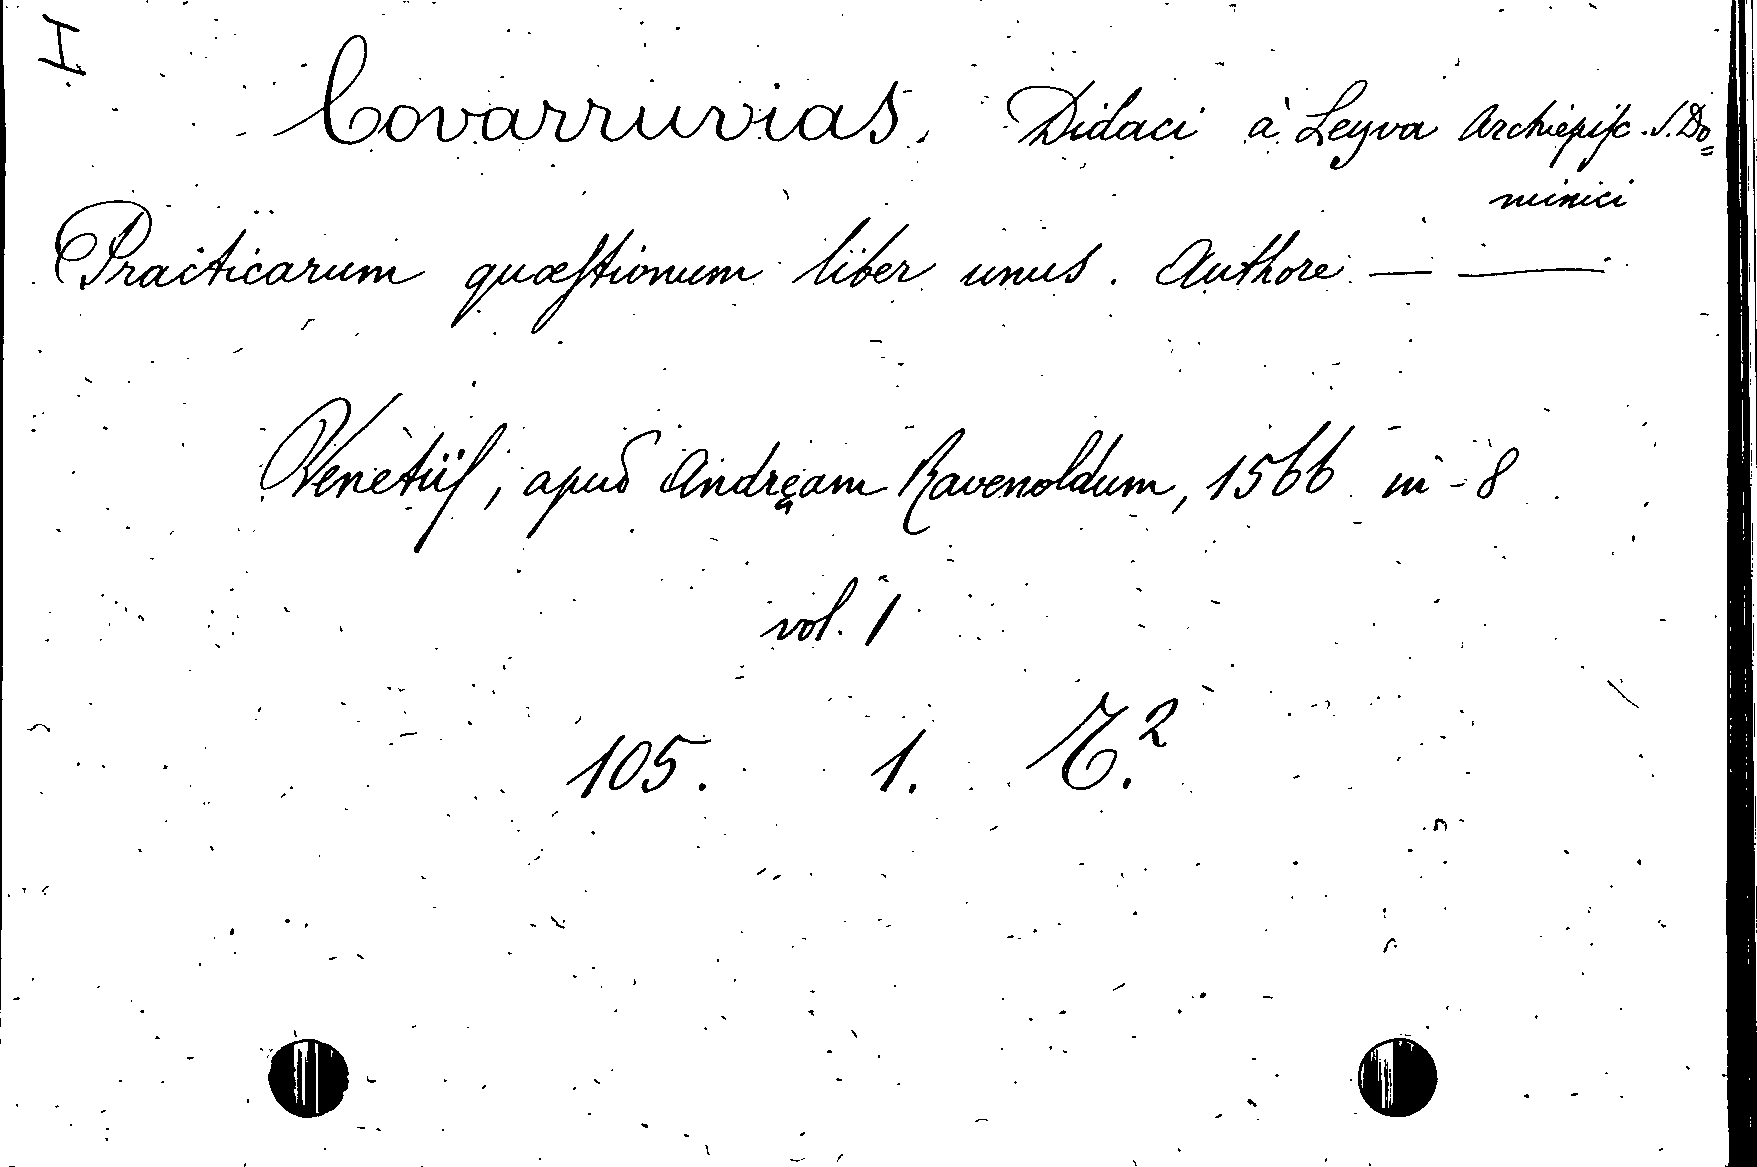 I
Covarruvias, Didaci à Leyva Archiepiſc. S. Do=
minici
Practicarum quæſtionum liber unus. Authore — —
Venetiiſ, apud Andręam Ravenoldum, 1566 in-8
vol. 1
105. 1. T.²